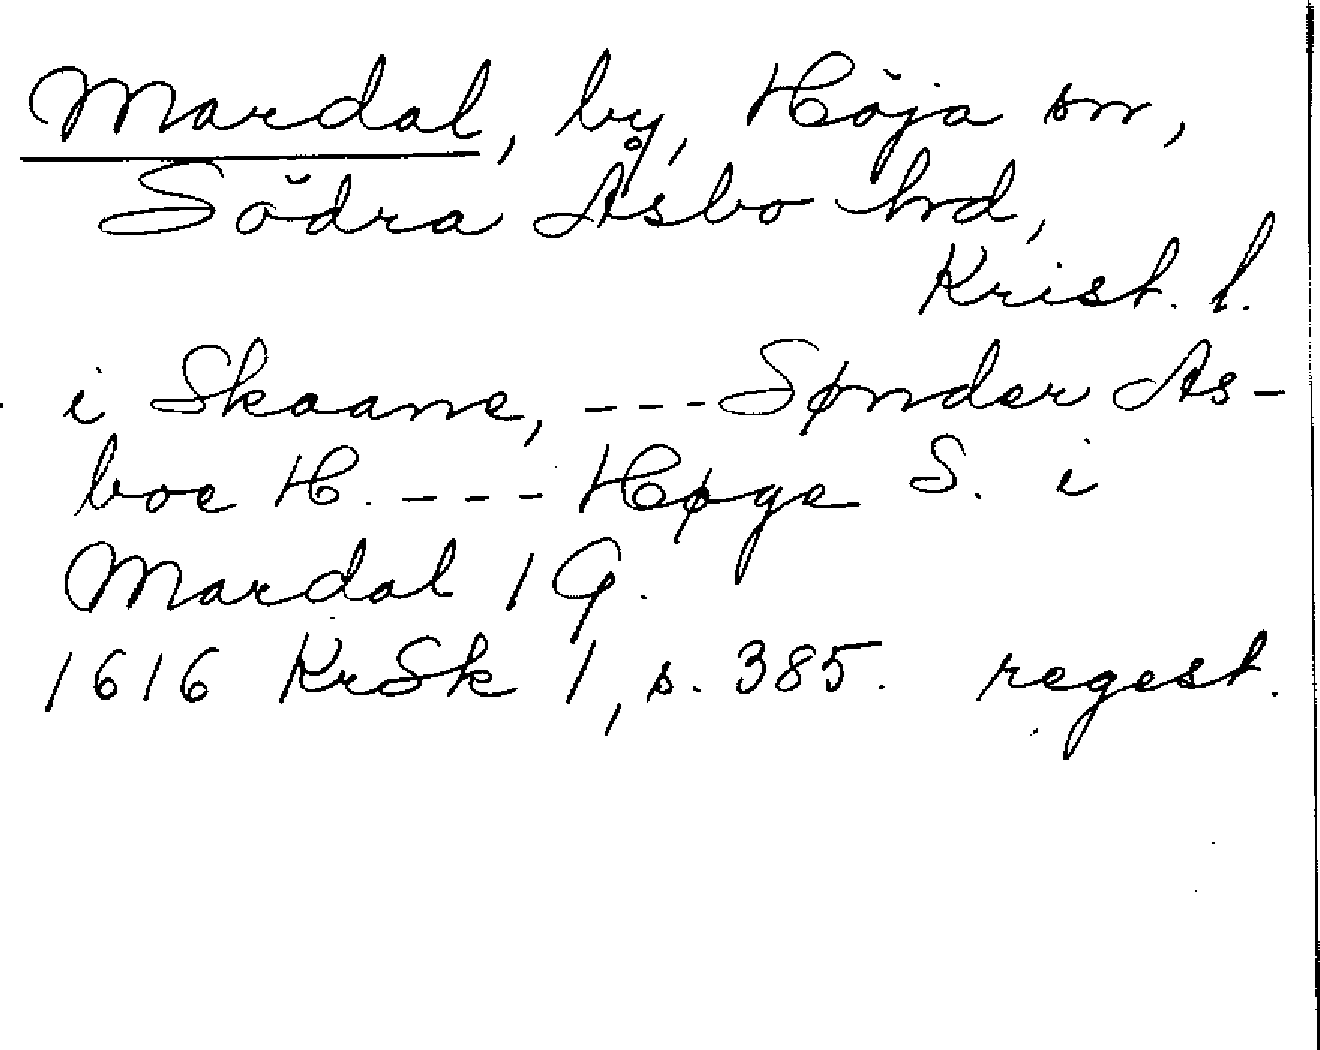 Mardal, by, Höja sn,
Södra Åsbo hrd,
Krist. l.
i Skaane, --- Sønder As-
boe H. --- Høge S. i
Mardal 1 G.
1616 KrSk 1, s. 385. regest.